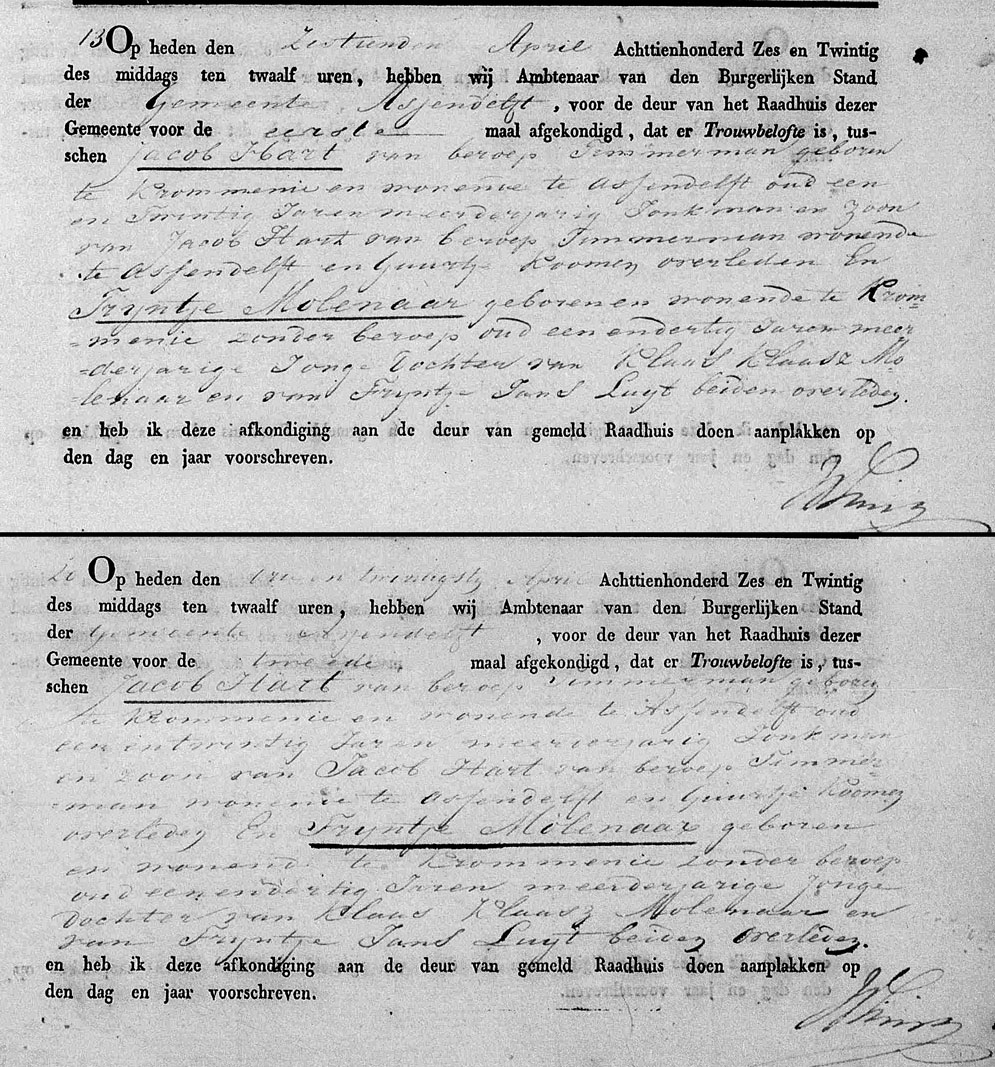 13 Op heden den Zestienden April Achttienhonderd Zes en Twintig
des middags ten twaalf uren, hebben wij Ambtenaar van den Burgerlijken Stand
der Gemeente Assendelft, voor de deur van het Raadhuis dezer
Gemeente voor de eerste maal afgekondigd, dat er Trouwbelofte is, tus-
schen Jacob Hart van beroep Timmerman geboren
te Krommenie en wonende te Assendelft oud een
en Twintig Jaren meerderjarig Jonkman en Zoon
van Jacob Hart van beroep Timmerman wonende
te Assendelft en Guurtje Koomen overleden En
Tryntje Molenaar geboren en wonende te Krom=
=menie zonder beroep oud een en dertig Jaren meer
=derjarige Jonge Dochter van Klaas Klaasz Mo
lenaar en van Tryntje Jans Luyt beiden overleden.
en heb ik deze afkondiging aan de deur van gemeld Raadhuis doen aanplakken op
den dag en jaar voorschreven.
20 Op heden den drie en twintigste April Achttienhonderd Zes en Twintig
des middags ten twaalf uren, hebben wij Ambtenaar van den Burgerlijken Stand
der Gemeente Assendelft, voor de deur van het Raadhuis dezer
Gemeente voor de tweede maal afgekondigd, dat er Trouwbelofte is, tus-
schen Jacob Hart van beroep Timmerman geboren
te Krommenie en wonende te Assendelft oud
een en twintig Jaren meerderjarig Jonkman
en Zoon van Jacob Hart van beroep Timmer=
=man wonende te Assendelft en Guurtje Koomen
overleden En Tryntje Molenaar geboren
en wonende te Krommenie zonder beroep
oud een en dertig Jaren meerderjarige Jonge
Dochter van Klaas Klaasz Molenaar en
van Tryntje Jans Luyt beiden overleden.
en heb ik deze afkondiging aan de deur van gemeld Raadhuis doen aanplakken op
den dag en jaar voorschreven.